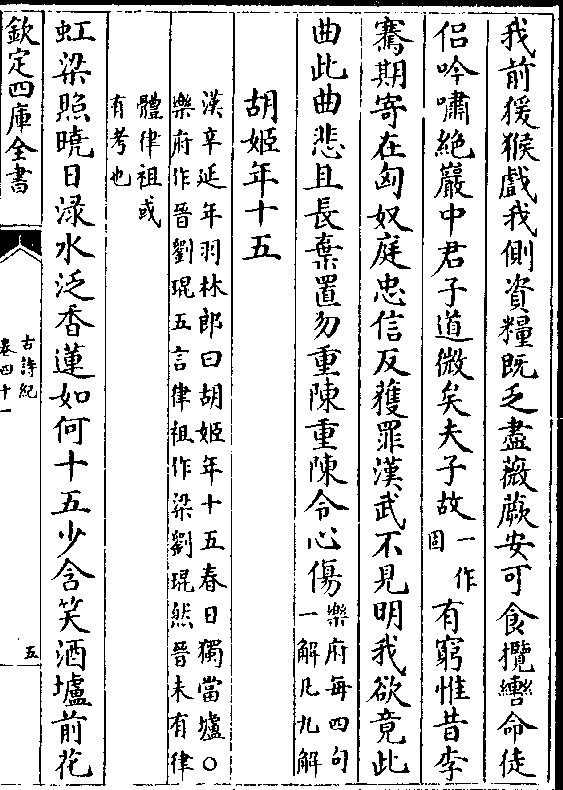 我前猨猴戲我側資糧既乏盡薇蕨安可食攬轡命徒
侶吟嘯絶巖中君子道微矣夫子故一作固有窮惟昔李
騫期寄在匈奴庭忠信反獲罪漢武不見明我欲竟此
曲此曲悲且長棄置勿重陳重陳令心傷樂府每四句一解凡九解
胡姬年十五
漢辛延年羽林郎曰胡姬年十五春日獨當壚〇
樂府作晉劉琨五言律祖作梁劉琨然晉未有律
體律祖或
有考也
虹梁照曉日渌水泛香蓮如何十五少含笑酒壚前花
欽定四庫全書
古詩紀
卷四十一
五